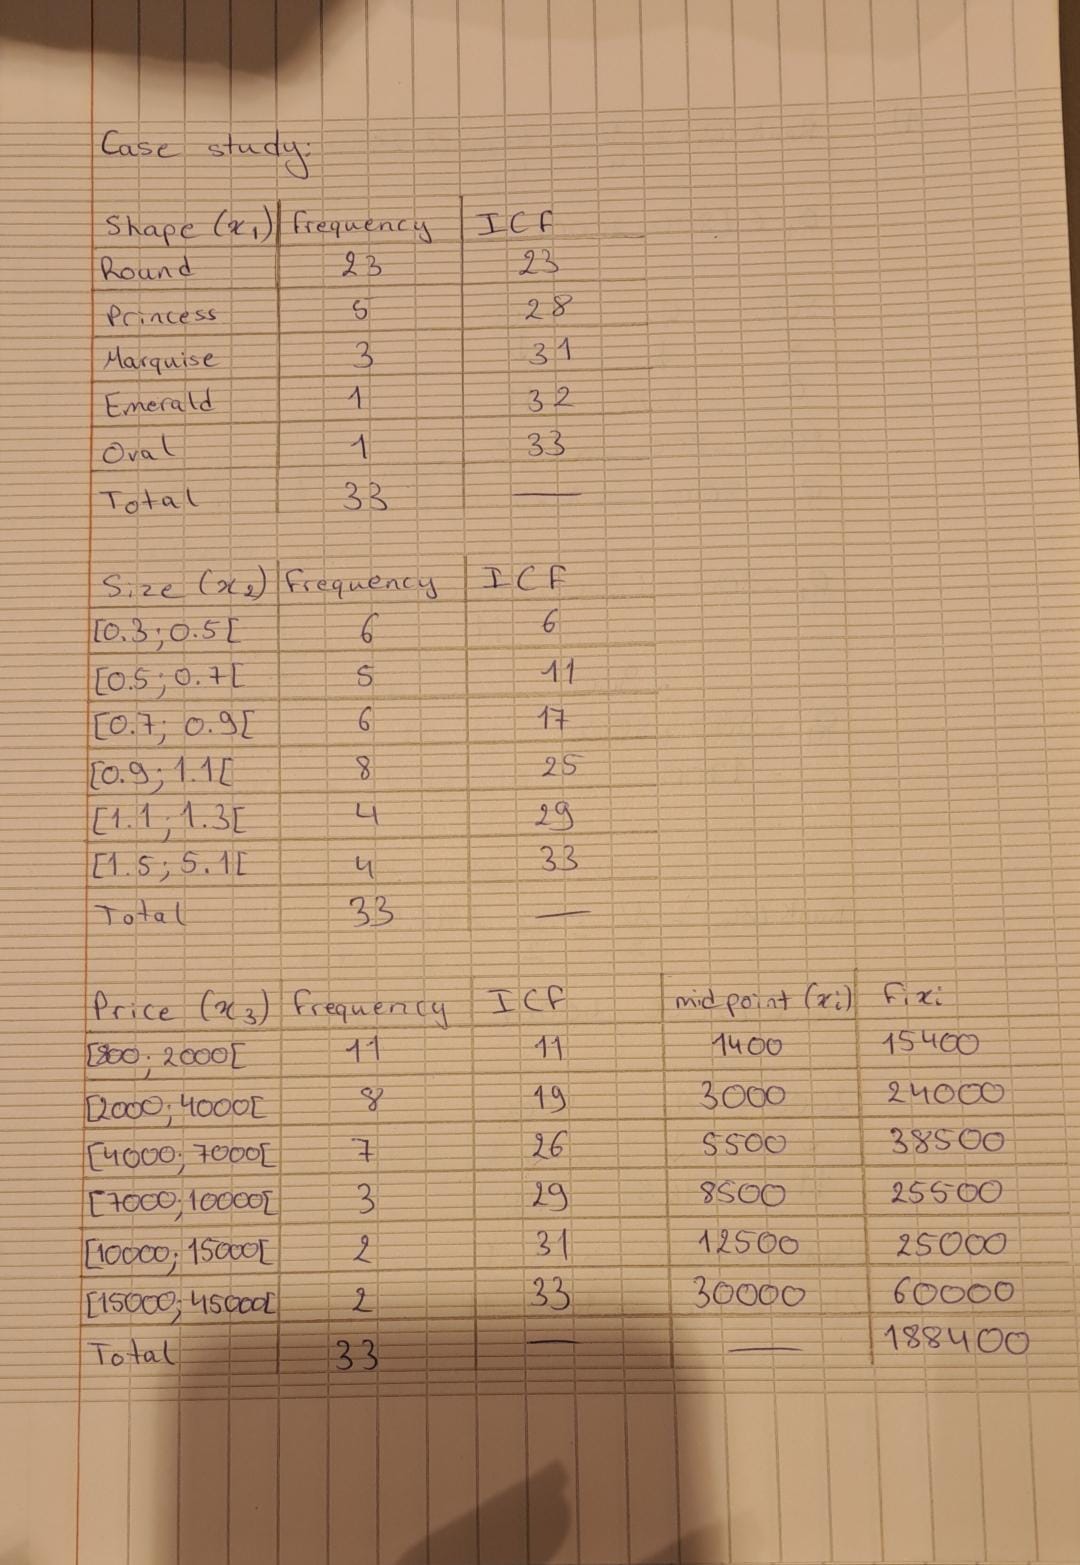 Case study:
Shape (x1) Frequency ICF
Round 23 23
Princess 5 28
Marquise 3 31
Emerald 1 32
Oval 1 33
Total 33 —
Size (x2) Frequency ICF
[0.3; 0.5[ 6 6
[0.5; 0.7[ 5 11
[0.7; 0.9[ 6 17
[0.9; 1.1[ 8 25
[1.1; 1.3[ 4 29
[1.5; 5.1[ 4 33
Total 33 —
Price (x3) Frequency ICF midpoint (xi) Fixi
[800; 2000[ 11 11 1400 15400
[2000; 4000[ 8 19 3000 24000
[4000; 7000[ 7 26 5500 38500
[7000; 10000[ 3 29 8500 25500
[10000; 15000[ 2 31 12500 25000
[15000; 45000[ 2 33 30000 60000
Total 33 — — 188400